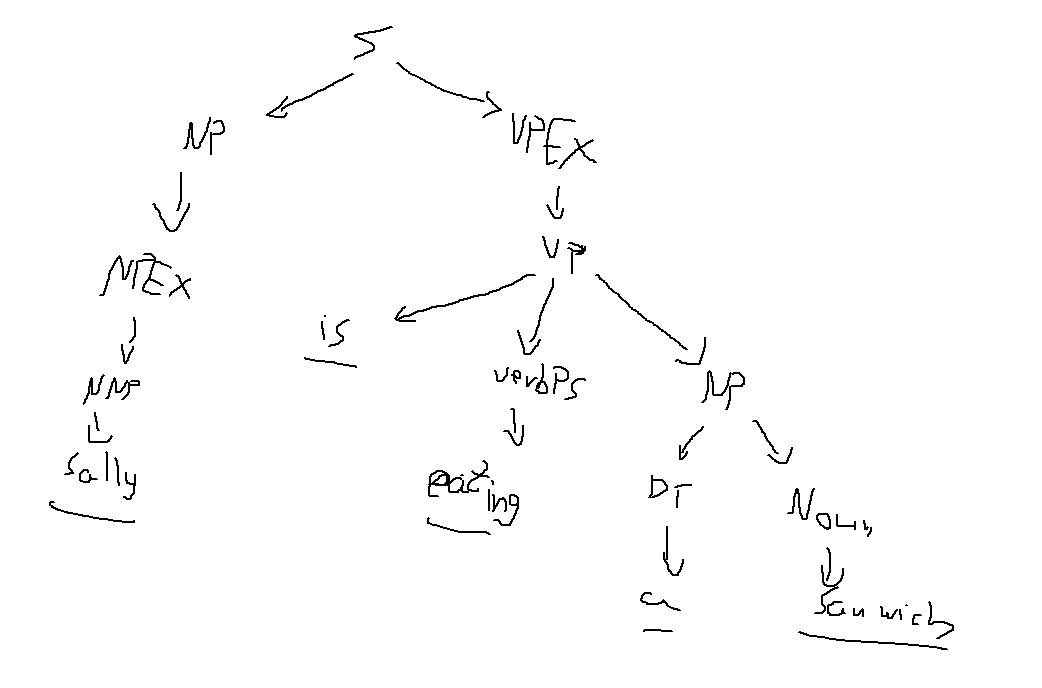 S
NP VPEX
VP
NPEX
is
NNP verbPS NP
Sally eating DT Noun
a Sanwich